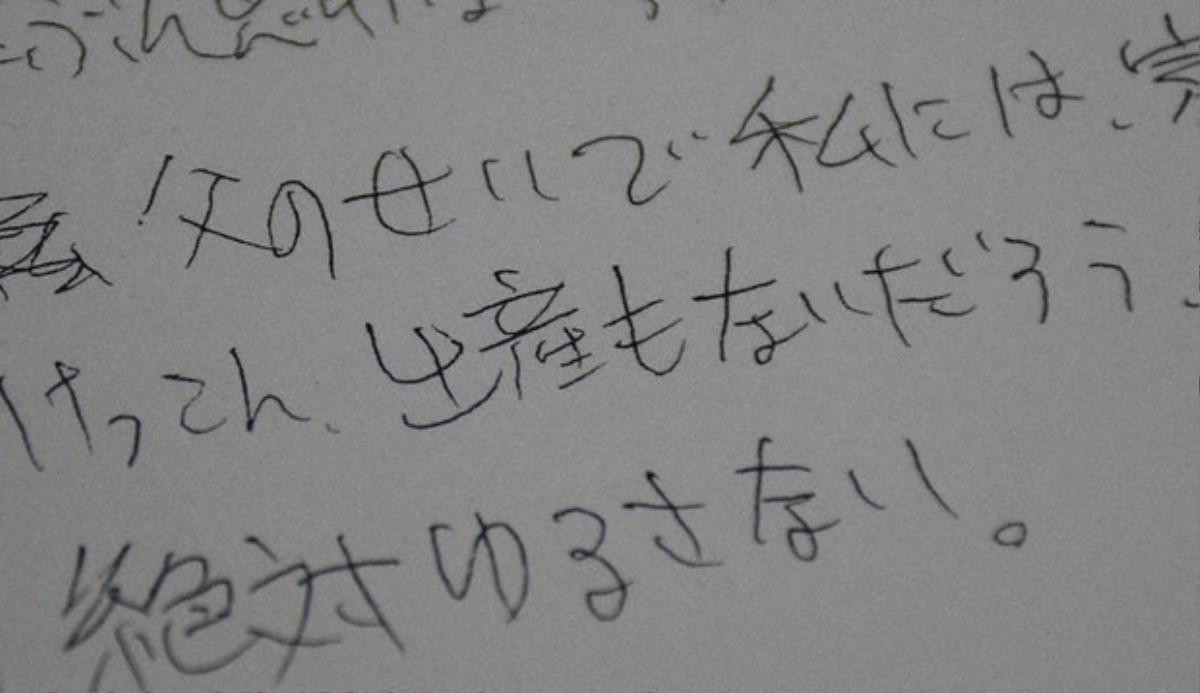 父のせいで私には、
けっこん、出産もないだろう
絶対ゆるさない。